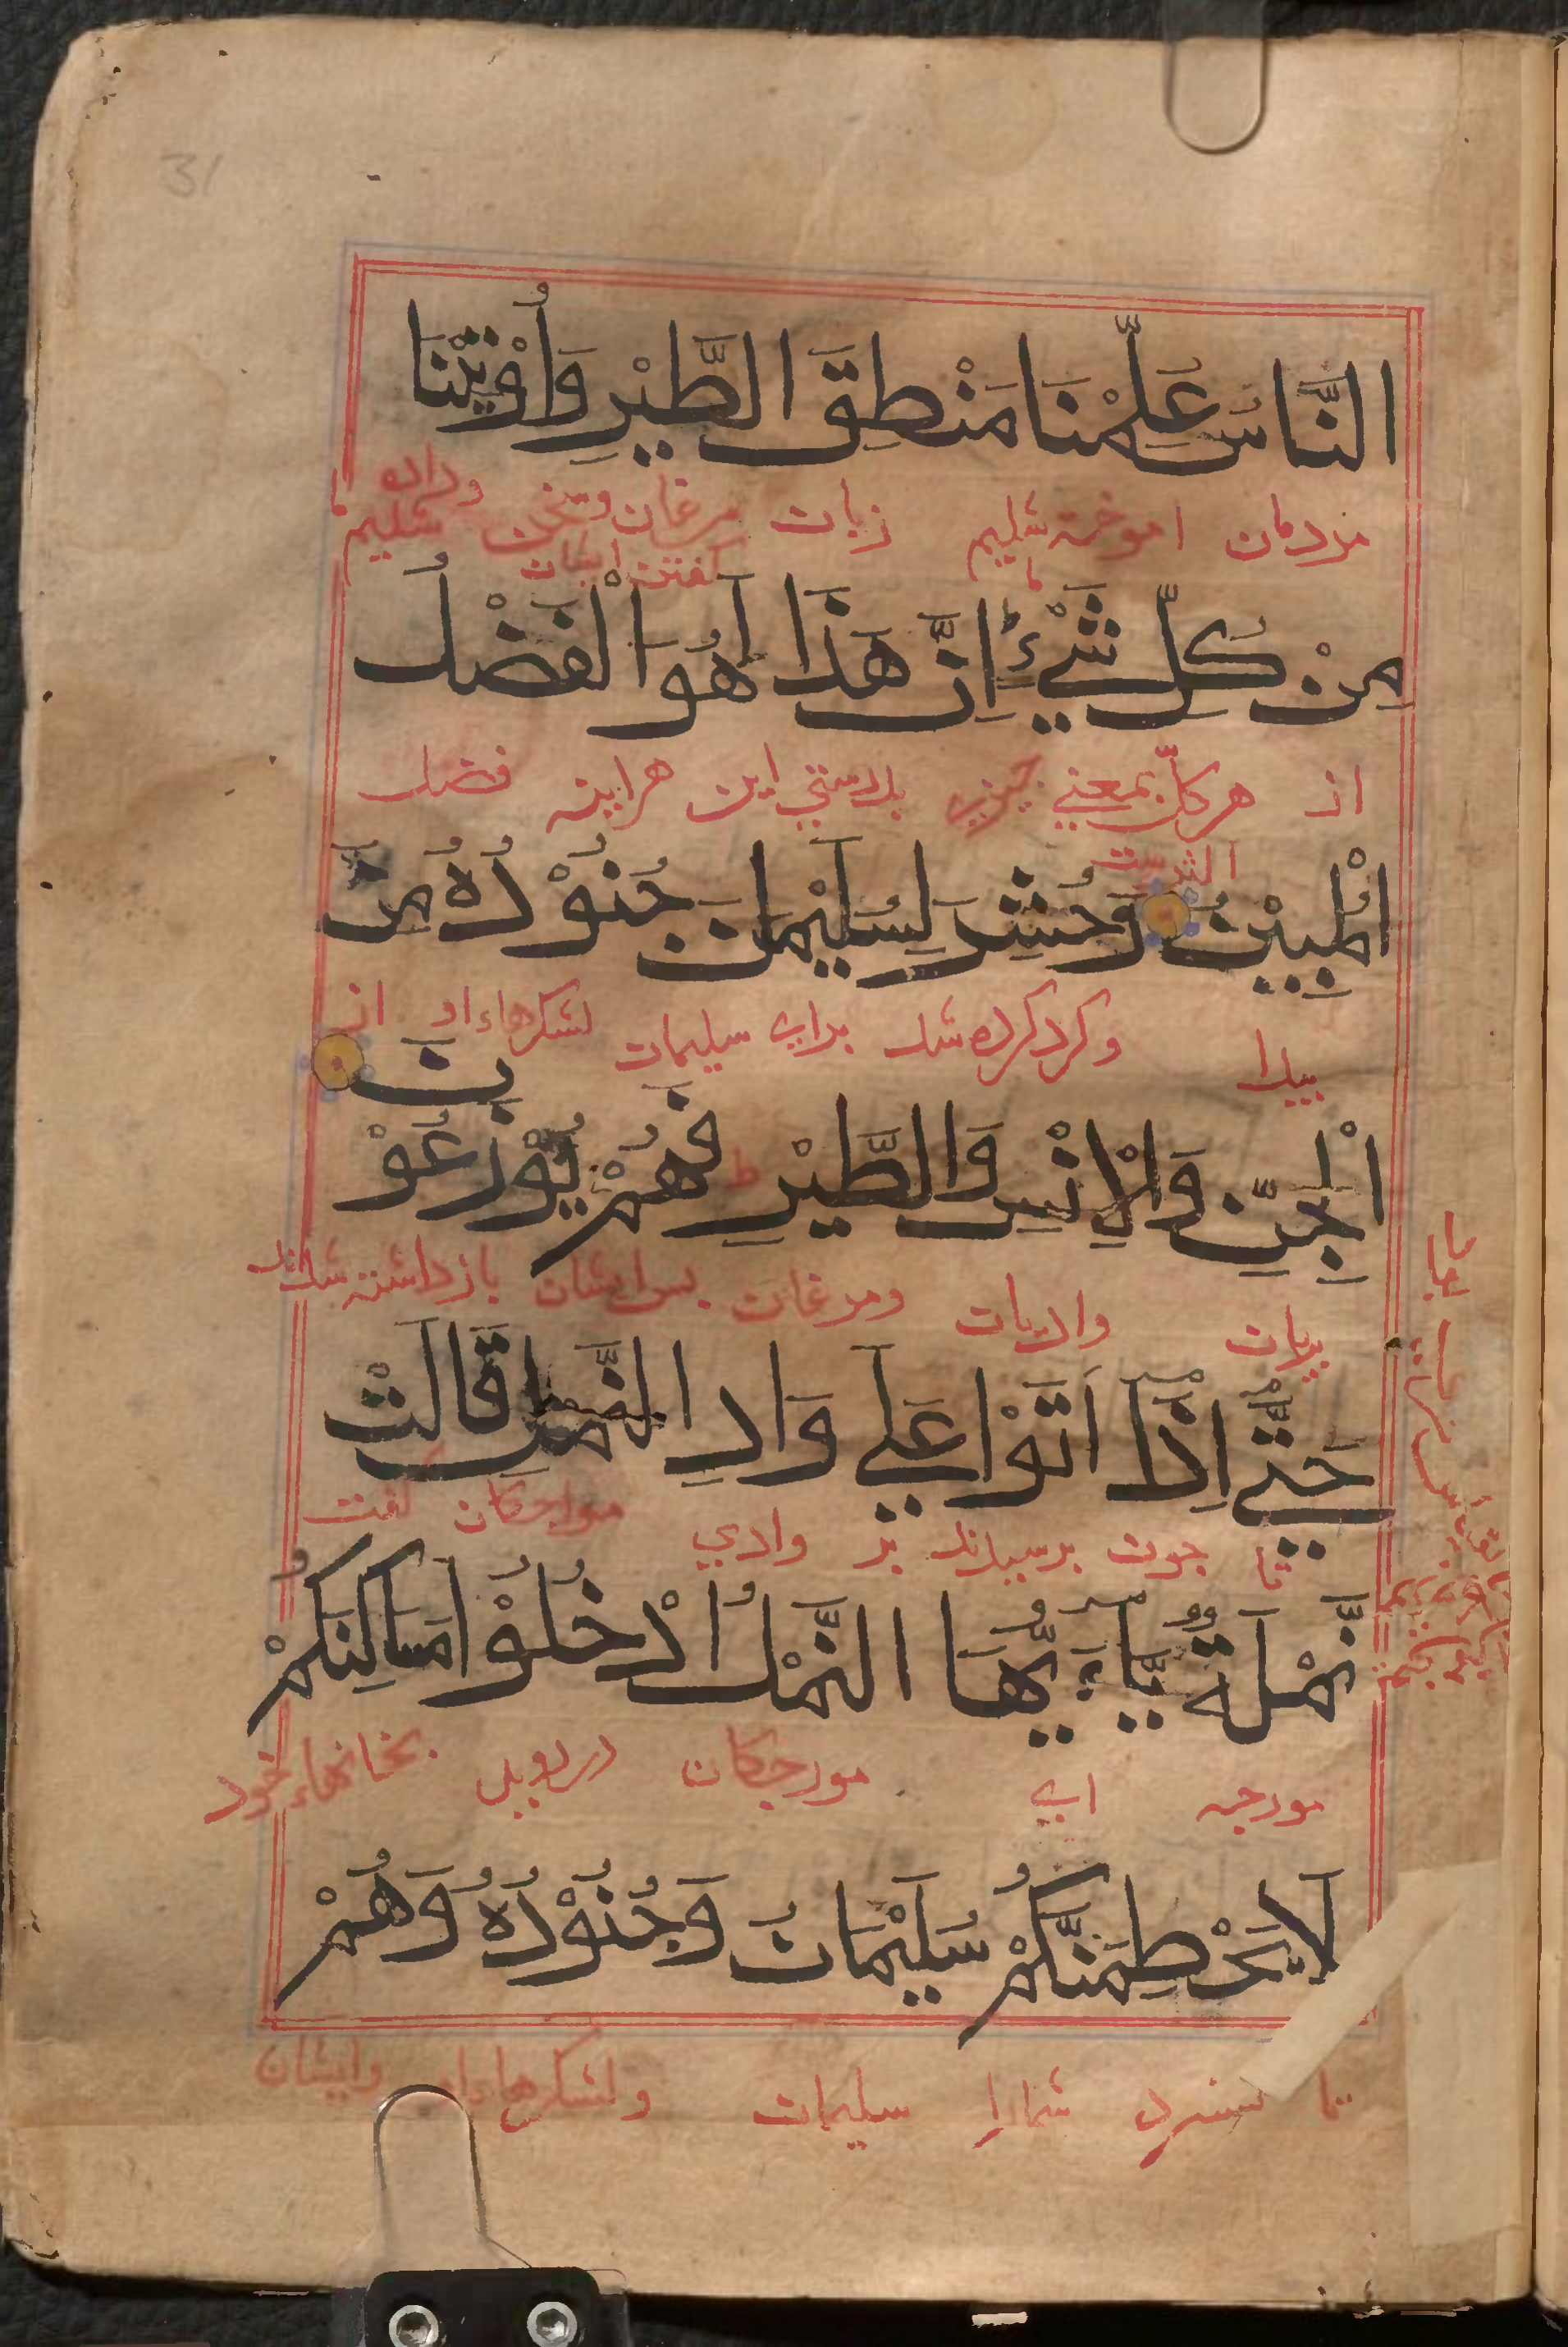 31
النَّاسُ عُلِّمْنَا مَنْطِقَ الطَّيْرِ وَأُوْتِيْنَا
مردمان اموخته شدیم زبان مرغان وسخن وداده شدیم
گفتن ایشان
مِنْ كُلِّ شَيْءٍ إِنَّ هَذَا لَهُوَ الْفَضْلُ
از هر کلّ بمعني چیزی بدرستي این هراینه فضل
الْمُبِيْنُ وَحُشِرَ لِسُلَيْمٰنَ جُنُوْدُهُ مِنَ
پیدا وگرد کرده شد برای سلیمان لشکرهاء او از
الْجِنِّ وَالْاِنْسِ وَالطَّيْرِ ط فَهُمْ يُوْزَعُوْ
نَ
پریان وادمیان ومرغان پس ایشان بازداشته شدند
حَتّٰي اِذَا اَتَوْا عَلٰي وَادِ النَّمْلِ قَالَتْ
تا چون برسیدند بر وادي مورچکان گفت
نَّمْلَةٌ يّٰاَيُّهَا النَّمْلُ ادْخُلُوْا مَسَاكِنَكُمْ
مورچه ای مورچکان دروید بخانهاء خود
لَايَحْطِمَنَّكُمْ سُلَيْمَانُ وَجُنُوْدُهُ وَهُمْ
تا شمارا سلیمان ولشکرهاء او وایشان